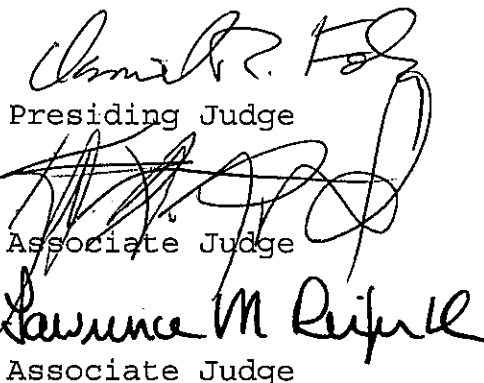 Daniel R. Foley
Presiding Judge
Associate Judge
Lawrence M Reifurth
Associate Judge